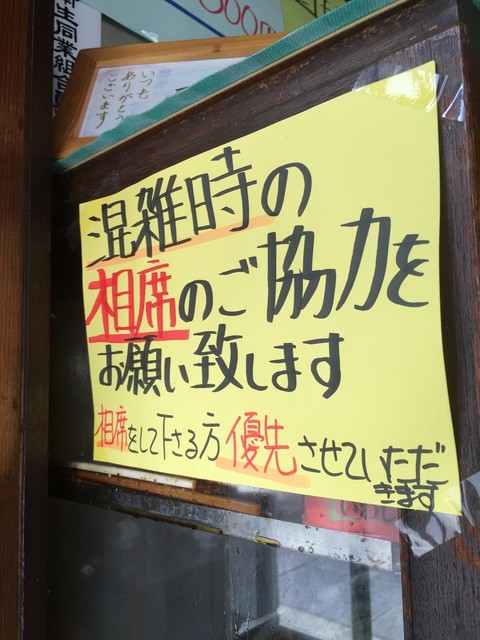 生同業組合
500円
いつも
ありがとう
ございます
混雑時の
相席のご協力を
お願い致します
相席をして下さる方優先させていただ
きます
いわし